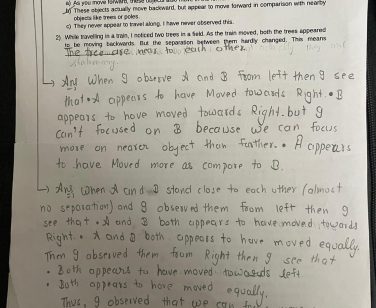 a) As you move forward, these objects also
b) These objects actually move backward, but appear to move forward in comparison with nearby
objects like trees or poles.
c) They never appear to travel along, I have never observed this.
2) While travelling in a train, I noticed two trees in a field. As the train moved, both the trees appeared
to be moving backwards. But the separation between them hardly changed. This means
The tree are near to each other.
→ Ans When I observe A and B from left then I see
that • A appears to have Moved towards Right. • B
appears to have moved towards Right. but I
can't focused on B because we can focus
more on nearer object than further. • A appears
to have Moved more as compare to B.
→ Ans When A and B stand close to each other (almost
no separation) and I observed them from left then I
see that • A and B both appears to have moved towards
Right. • A and B both appears to have moved equally
Then I observed them from Right then I see that
• Both appears to have moved towards left.
• Both appears to have moved equally.
Thus, I observed that we can